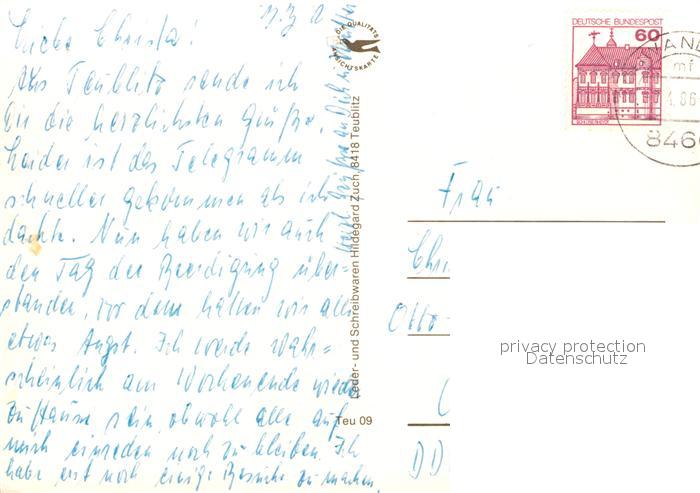 Liebe Christa!
Aus Teublitz sende ich
Dir die herzlichsten Grüße.
Leider ist das Telegramm
schneller gekommen als ich
dachte. Nun haben wir auch
den Tag der Beerdigung über=
standen, vor dem hatten wir alle
etwas Angst. Ich werde wahr=
scheinlich am Wochenende wieder
zu Hause sein, obwohl alle auf
mich einreden noch zu bleiben. Ich
habe erst noch einige Besuche zu machen.
DIE QUALITÄTS
ANSICHTSKARTE
Leder- und Schreibwaren Hildegard Zuch, 8418 Teublitz
Teu 09
DEUTSCHE BUNDESPOST
60
mf
.86
846
Frau
Chri
Otto-
DD
privacy protection
Datenschutz